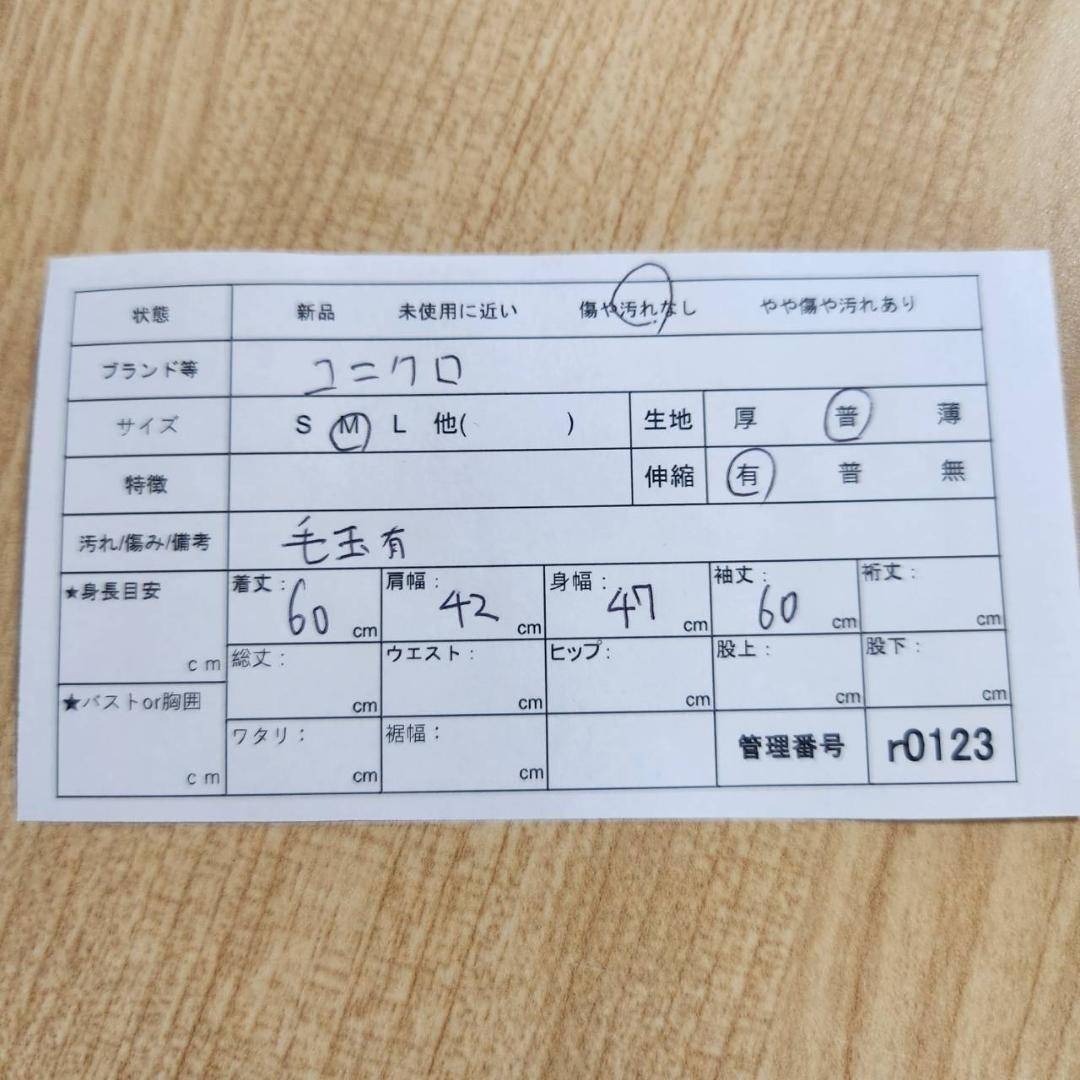 状態 新品 未使用に近い 傷や汚れなし やや傷や汚れあり
ブランド等 ユニクロ
サイズ S M L 他( ) 生地 厚 普 薄
特徴 伸縮 有 普 無
汚れ/傷み/備考 毛玉有
★身長目安 cm 着丈: 60 cm 肩幅: 42 cm 身幅: 47 cm 袖丈: 60 cm 裄丈: cm
総丈: cm ウエスト: cm ヒップ: cm 股上: cm 股下: cm
★バストor胸囲 cm ワタリ: cm 裾幅: cm 管理番号 r0123